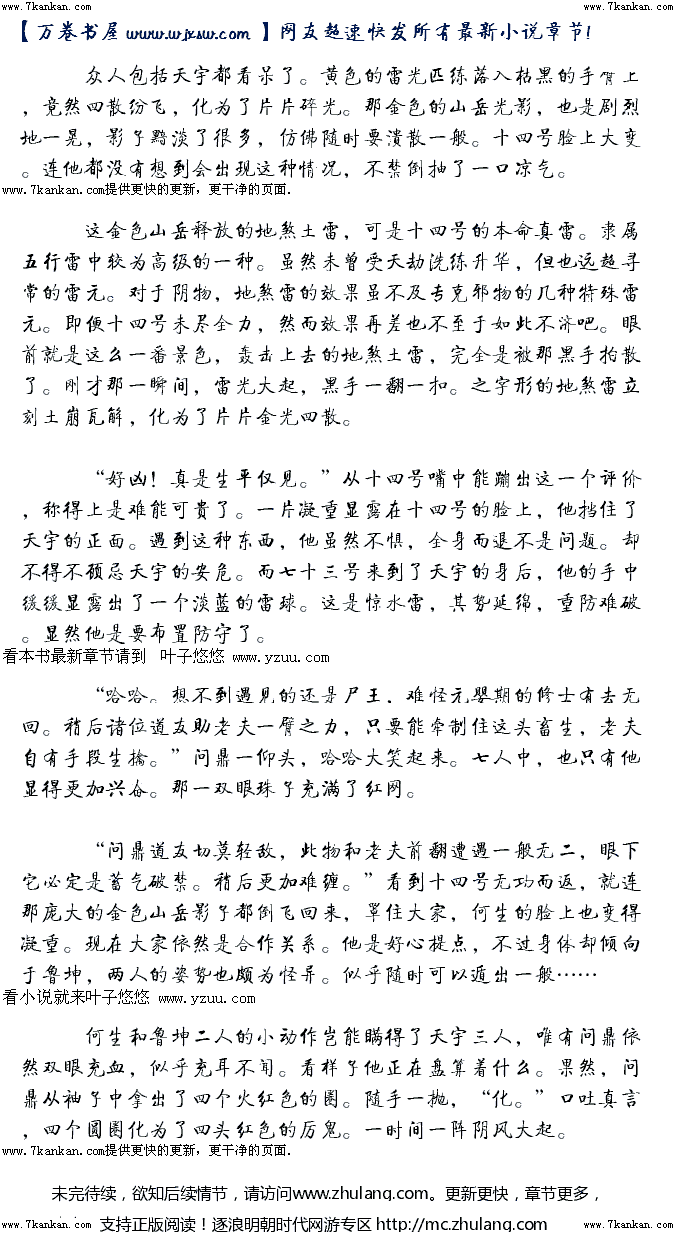 www.7kankan.com www.7kankan.com
【万卷书屋 www.wjxsw.com 】网友超速快发所有最新小说章节!
众人包括天宇都看呆了。黄色的雷光匹练落入枯黑的手臂上
，竟然四散纷飞，化为了片片碎光。那金色的山岳光影，也是剧烈
地一晃，影子黯淡了很多，仿佛随时要溃散一般。十四号脸上大变
。连他都没有想到会出现这种情况，不禁倒抽了一口凉气。
www.7kankan.com提供更快的更新，更干净的页面.
这金色山岳释放的地煞土雷，可是十四号的本命真雷。隶属
五行雷中较为高级的一种。虽然未曾受天劫洗练升华，但也远超寻
常的雷元。对于阴物，地煞雷的效果虽不及专克邪物的几种特殊雷
元。即便十四号未尽全力，然而效果再差也不至于如此不济吧。眼
前就是这么一番景色，轰击上去的地煞土雷，完全是被那黑手拍散
了。刚才那一瞬间，雷光大起，黑手一翻一扣。之字形的地煞雷立
刻土崩瓦解，化为了片片金光四散。
“好凶！真是生平仅见。”从十四号嘴中能蹦出这一个评价
，称得上是难能可贵了。一片凝重显露在十四号的脸上，他挡住了
天宇的正面。遇到这种东西，他虽然不惧，全身而退不是问题。却
不得不顾忌天宇的安危。而七十三号来到了天宇的身后，他的手中
缓缓显露出了一个淡蓝的雷球。这是惊水雷，其势延绵，重防难破
。显然他是要布置防守了。
看本书最新章节请到 叶子悠悠 www.yzuu.com
“哈哈。想不到遇见的还是尸王，难怪元婴期的修士有去无
回。稍后诸位道友助老夫一臂之力，只要能牵制住这头畜生，老夫
自有手段生擒。”问鼎一仰头，哈哈大笑起来。七人中，也只有他
显得更加兴奋。那一双眼珠子充满了红网。
“问鼎道友切莫轻敌，此物和老夫前翻遭遇一般无二，眼下
它必定是蓄气破禁。稍后更加难缠。”看到十四号无功而返，就连
那庞大的金色山岳影子都倒飞回来，罩住大家，何生的脸上也变得
凝重。现在大家依然是合作关系。他是好心提点，不过身体却倾向
于鲁坤，两人的姿势也颇为怪异。似乎随时可以遁出一般……
看小说就来叶子悠悠 www.yzuu.com
何生和鲁坤二人的小动作岂能瞒得了天宇三人，唯有问鼎依
然双眼充血，似乎充耳不闻。看样子他正在盘算着什么。果然，问
鼎从袖子中拿出了四个火红色的圈。随手一抛，“化。”口吐真言
，四个圆圈化为了四头红色的厉鬼。一时间一阵阴风大起。
www.7kankan.com提供更快的更新，更干净的页面.
未完待续，欲知后续情节，请访问www.zhulang.com。更新更快，章节更多，
www.7kankan.com 支持正版阅读！逐浪明朝时代网游专区 http://mc.zhulang.com www.7kankan.com